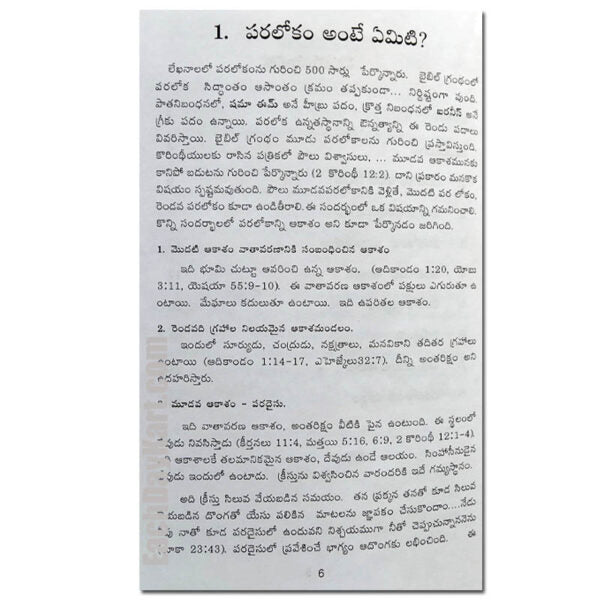 1. పరలోకం అంటే ఏమిటి?
లేఖనాలలో పరలోకంను గురించి 500 సార్లు పేర్కొన్నారు. బైబిల్ గ్రంథంలో
పరలోక సిద్ధాంతం ఆసాంతం క్రమం తప్పకుండా... నిర్దిష్టంగా వుంది.
పాతనిబంధనలో, షమా ఈమ్ అనే హీబ్రు పదం, క్రొత్త నిబంధనలో ఐరనీస్ అనే
గ్రీకు పదం ఉన్నాయి. పరలోక ఉన్నతస్థానాన్ని ఔన్నత్యాన్ని ఈ రెండు పదాలు
వివరిస్తాయి. బైబిల్ గ్రంథం మూడు పరలోకాలను గురించి ప్రస్తావిస్తుంది.
కొరింథీయులకు రాసిన పత్రికలో పౌలు విశ్వాసులు, ... మూడవ ఆకాశమునకు
కానిపో బడుటను గురించి పేర్కొన్నారు (2 కొరింథీ 12:2). దాని ప్రకారం మనకొక
విషయం స్పష్టమవుతుంది. పౌలు మూడవపరలోకానికి వెళ్లితే, మొదటి పర లోకం,
రెండవ పరలోకం కూడా ఉండితీరాలి. ఈ సందర్భంలో ఒక విషయాన్ని గమనించాలి.
కొన్ని సందర్భాలలో పరలోకాన్ని ఆకాశం అని కూడా పేర్కొనడం జరిగింది.
1. మొదటి ఆకాశం వాతావరణానికి సంబంధించిన ఆకాశం
ఇది భూమి చుట్టూ ఆవరించి ఉన్న ఆకాశం. (ఆదికాండం 1:20, యోబు
3:11, యెషయా 55:9-10). ఈ వాతావరణ ఆకాశంలో పక్షులు ఎగురుతూ ఉ
ంటాయి. మేఘాలు కదులుతూ ఉంటాయి. ఇది ఉపరితల ఆకాశం.
2. రెండవది గ్రహాల నిలయమైన ఆకాశమండలం.
ఇందులో సూర్యుడు, చంద్రుడు, నక్షత్రాలు, మనవికాని తదితర గ్రహాలు
ఉంటాయి (ఆదికాండం 1:14-17, ఎహెజ్కేలు32:7). దీన్ని అంతరిక్షం అని
ఉదహరిస్తారు.
3. మూడవ ఆకాశం - పరదైసు.
ఇది వాతావరణ ఆకాశం, అంతరిక్షం వీటికి పైన ఉంటుంది. ఈ స్థలంలో
దేవుడు నివసిస్తాడు (కీర్తనలు 11:4, మత్తయి 5:16, 6:9, 2 కొరింథీ 12:1-4).
ఆకాశాలకే తలమానికమైన ఆకాశం, దేవుడు ఉండే ఆలయం. సింహాసీనుడైన
దేవుడు ఇందులో ఉంటాడు. క్రీస్తును విశ్వసించిన వారందరికి ఇదే గమ్యస్థానం.
అది క్రీస్తు సిలువ వేయబడిన సమయం. తన ప్రక్కన తనతో కూడ సిలువ
వేయబడిన దొంగతో యేసు పలికిన మాటలను జ్ఞాపకం చేసుకొందాం....నేడు
నీవు నాతో కూడ పరదైసులో ఉందువని నిశ్చయముగా నీతో చెప్పుచున్నాననెను
(లూకా 23:43). పరదైసులో ప్రవేశించే భాగ్యం ఆదొంగకు లభించింది. ఈ
6